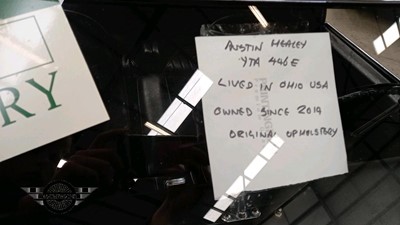 RY
AUSTIN HEALEY
YTA 446E
LIVED IN OHIO USA
OWNED SINCE 2019
ORIGINAL UPHOLSTERY